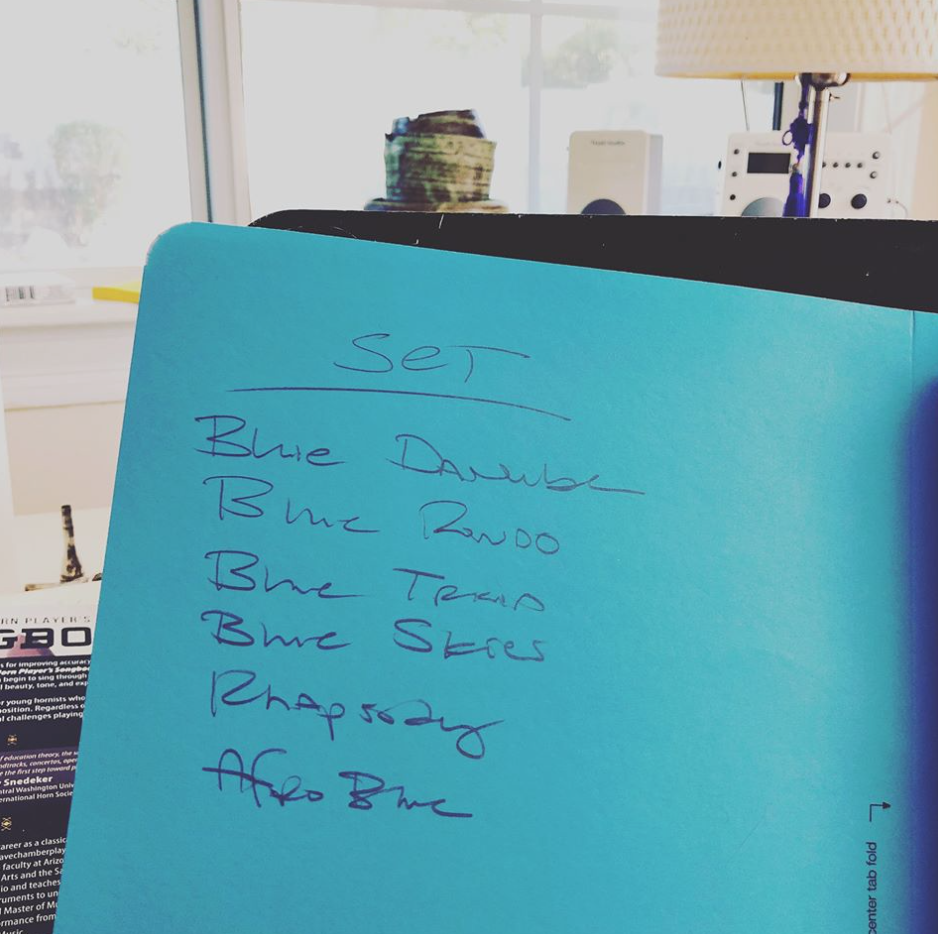 SET
Blue Danube
Blue Rondo
Blue Train
Blue Skies
Rhapsody
Afro Blue
center tab fold
Tivoli Audio
RN PLAYER'S
GBO
s for improving accuracy
Horn Player's Songbo
begin to sing through
l beauty, tone, and exp
r young hornists who
position. Regardless o
al challenges playing
f education theory, the s
ndtracks, concertos, ope
e the first step toward p
Snedeker
ntral Washington Univ
ernational Horn Socie
areer as a classic
avechamberplay
faculty at Arizo
Arts and the Sa
io and teaches
ruments to un
Master of M
rmance from
Music